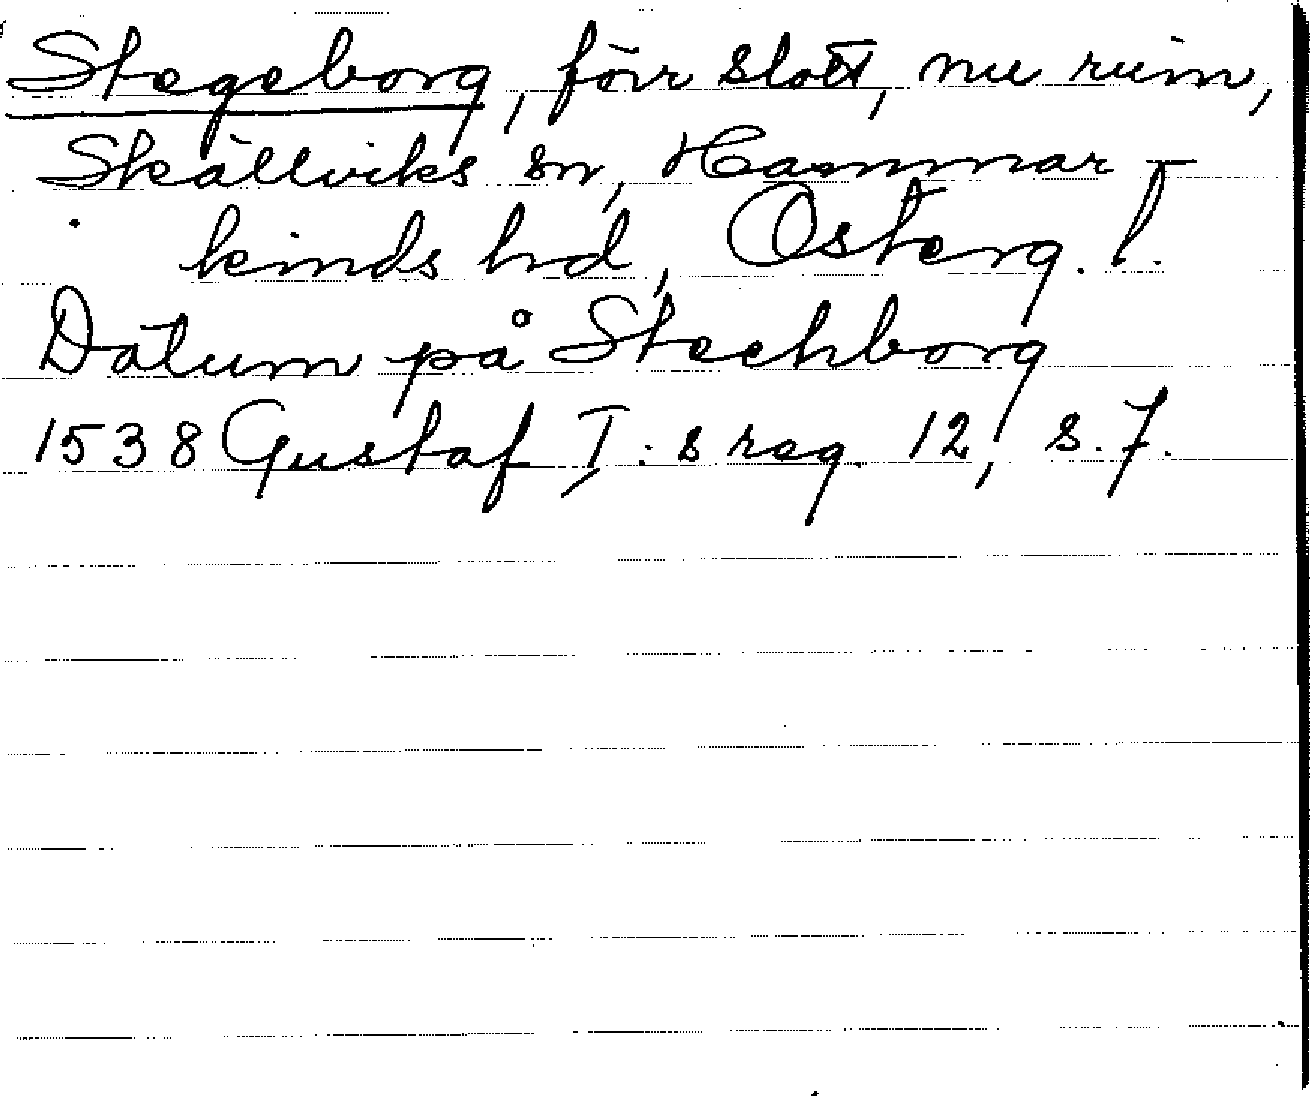 Stegeborg, förr slott, nu ruin,
Skällviks sn, Hammar-
kinds hd, Österg. l.
Datum på Steckborg
1538 Gustaf I:s reg. 12, s. 7.